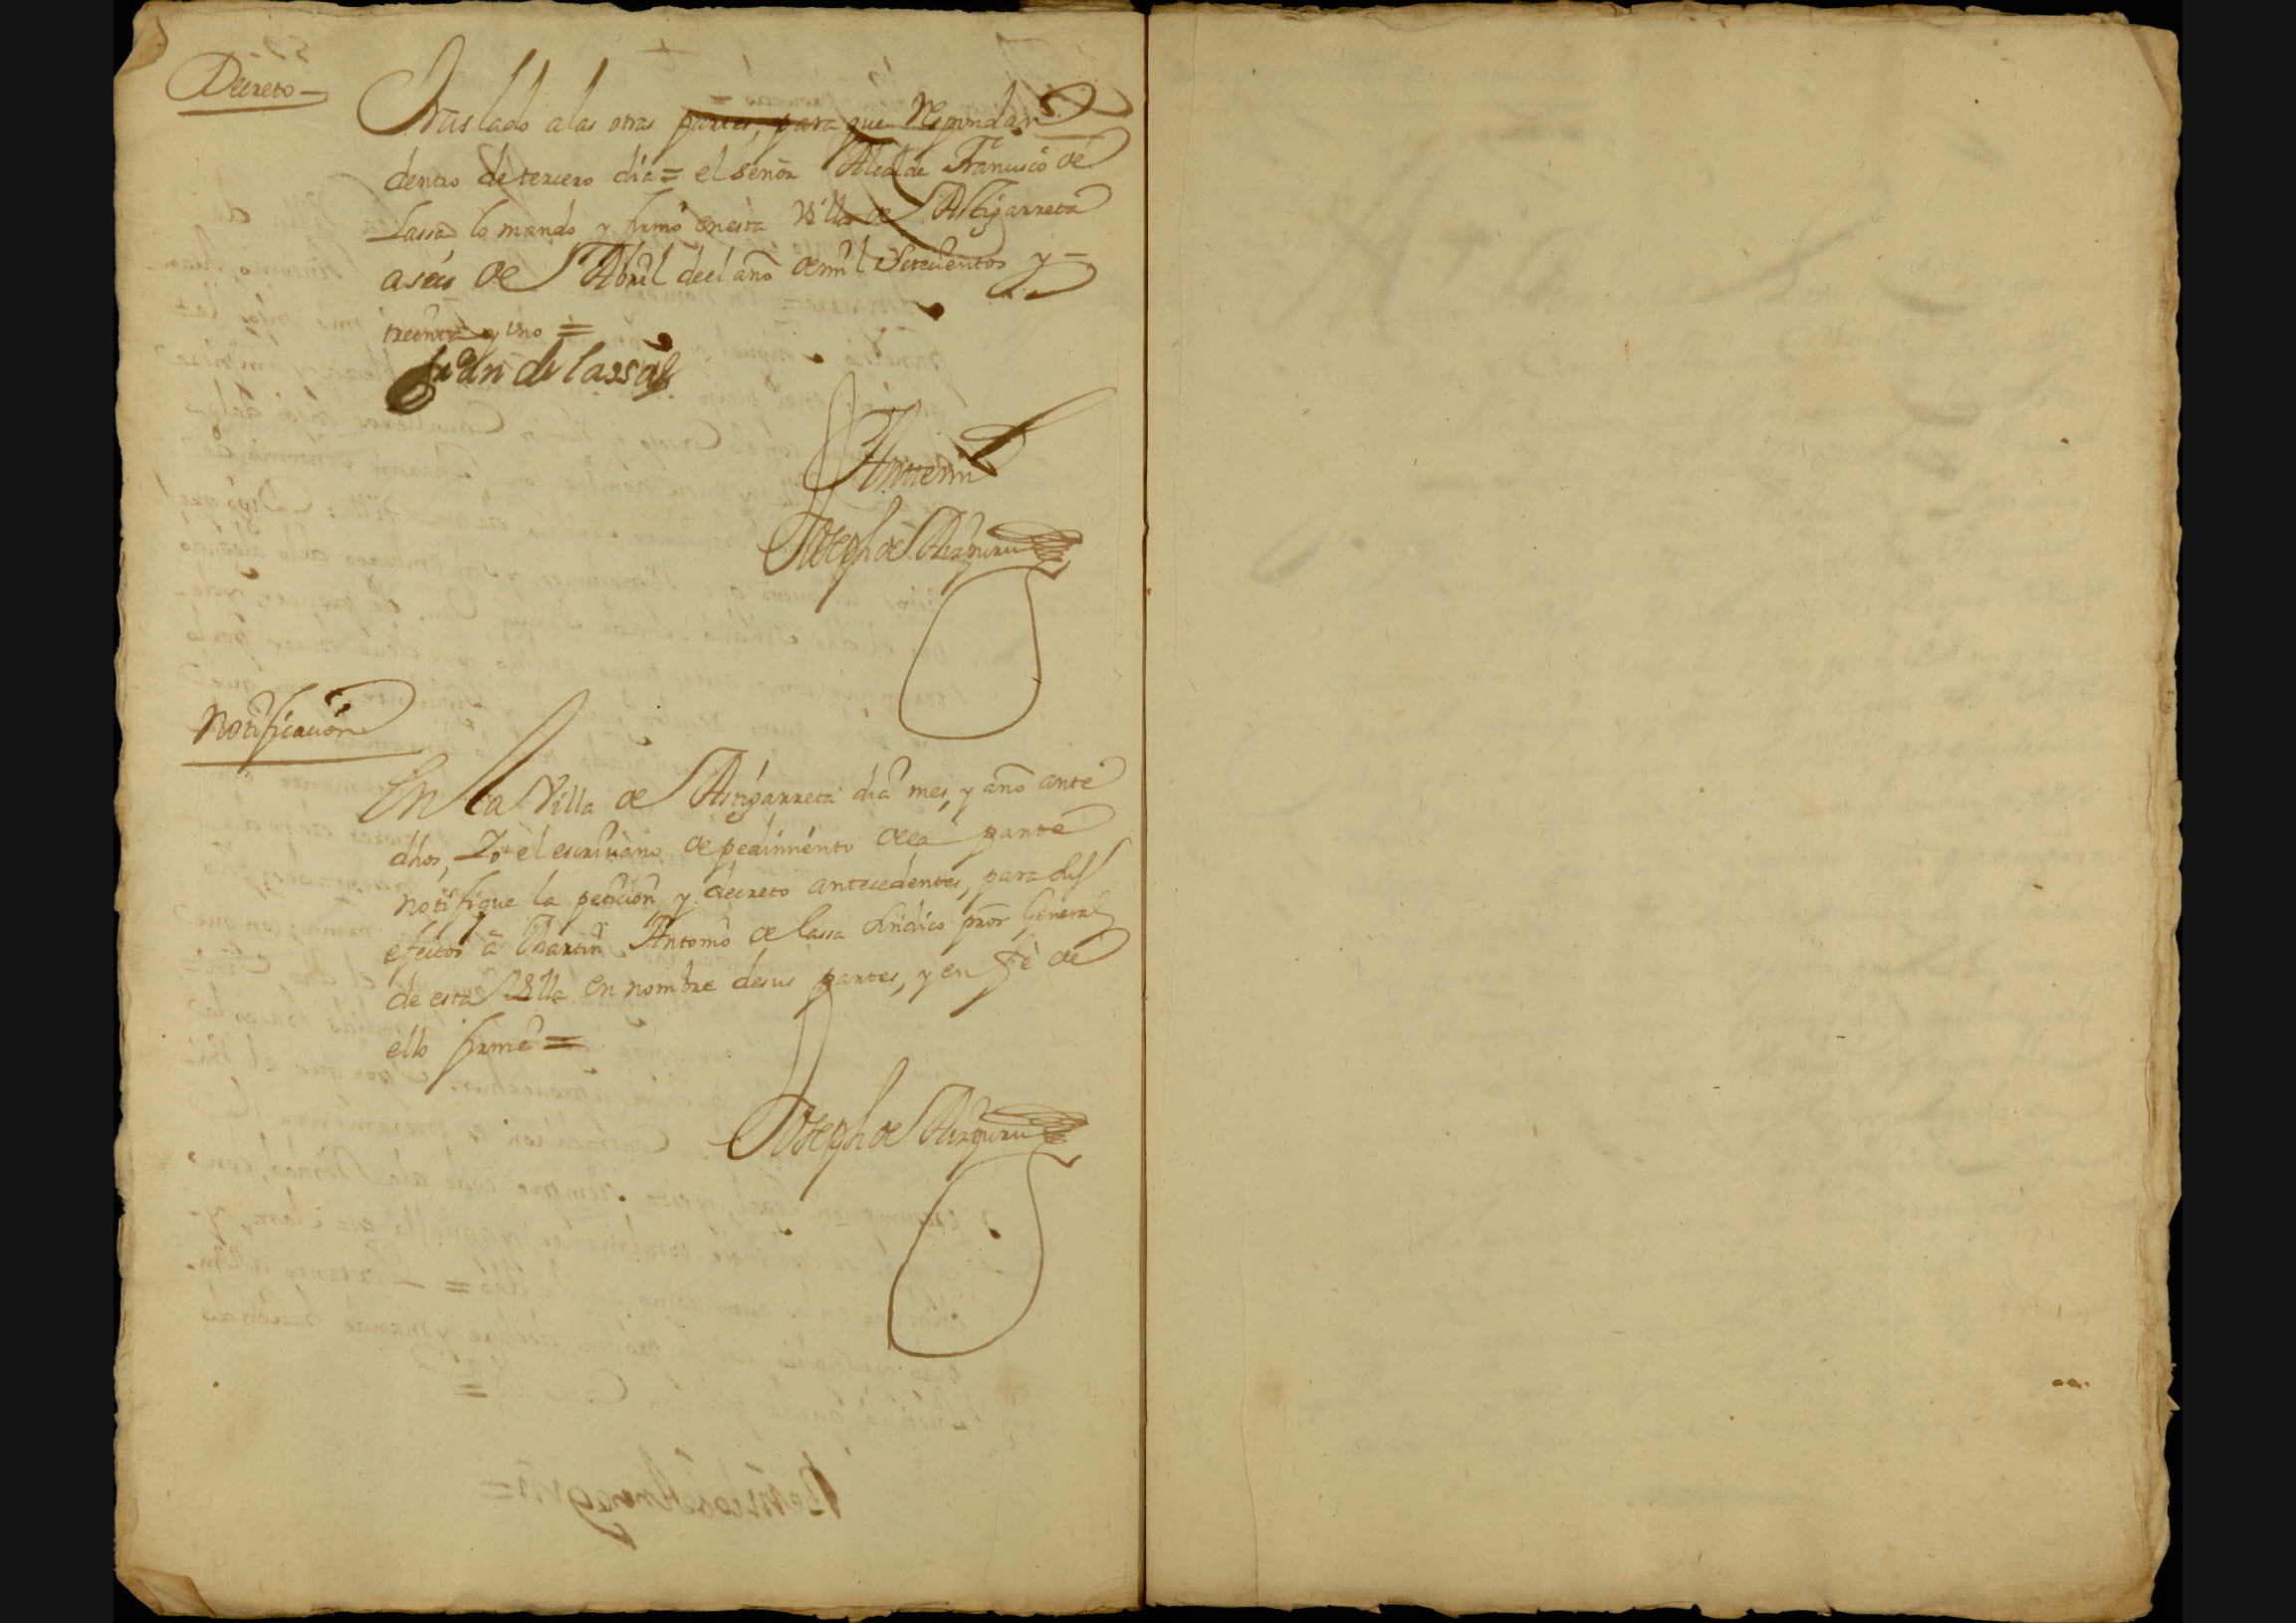 Decreto
Traslado a las otras partes, para que Respondan
dentro de tercero dia = el señor Alcalde Francisco de
Lassa lo mando y firmo en esta Villa de Astigarreta
a seis de Abril de el año de mil Setecientos y
treinta y uno =
Fran de lassa
Antemi
Joseph de Aizpuru
Notificacion
En la Villa de Astigarreta dia mes, y año ante
dhos, Yo el escriuano de pedimiento de la parte
notifique la peticion, y decreto antecedentes, para
efectos a Martin Antonio de Lassa Sindico pror General
de esta Villa en nombre de sus partes, y en fè de
ello firme =
Joseph de Aizpuru